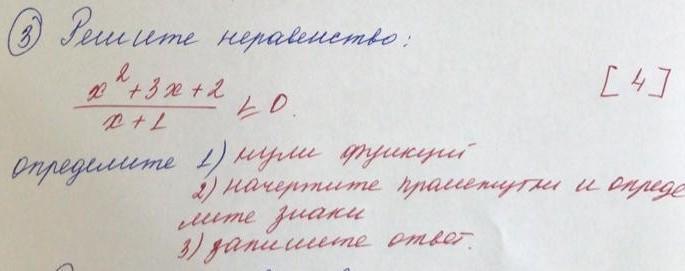 ③ Решите неравенство:
x² + 3x + 2
x + 1 ≤ 0.
[4]
определите 1) нули функций
2) начертите промежутки и опреде
лите знаки
3) запишите ответ.